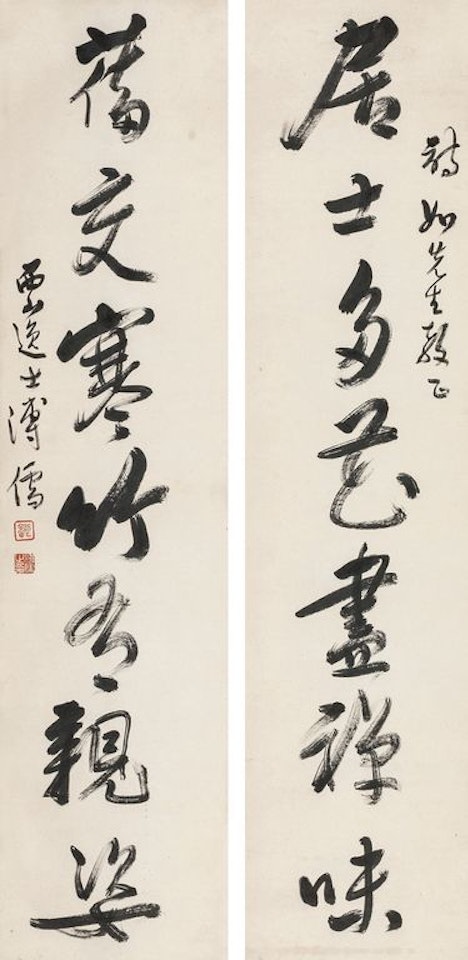 如先生教正
居士多花盡禪味
舊交寒竹有親姿
西山逸士溥儒